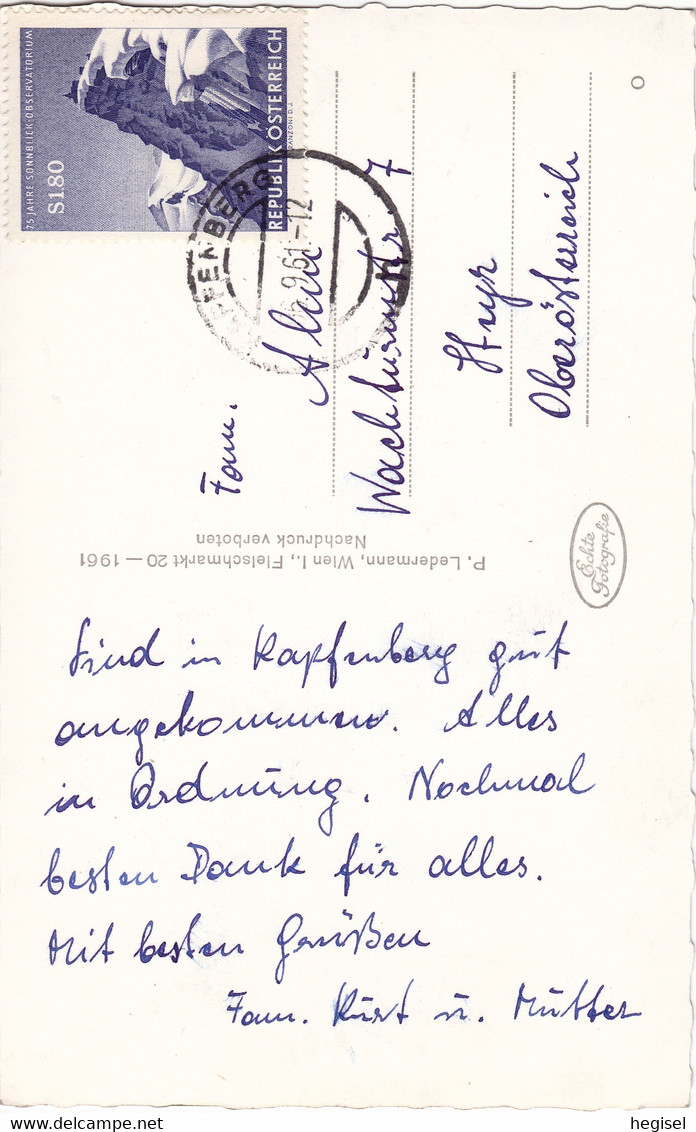 75 JAHRE SONNBLICK-OBSERVATORIUM
S 1·80
REPUBLIK ÖSTERREICH
KAPFENBERG
6.9.61-12
Fam.
Wachtturmstr. 7
Steyr
Oberösterreich
P. Ledermann, Wien I., Fleischmarkt 20 — 1961
Nachdruck verboten
Echte
Fotografie
Sind in Kapfenberg gut
angekommen. Alles
in Ordnung. Nochmal
besten Dank für alles.
Mit besten Grüßen
Fam. Kurt u. Mutter
Delcampe.net
hegisel